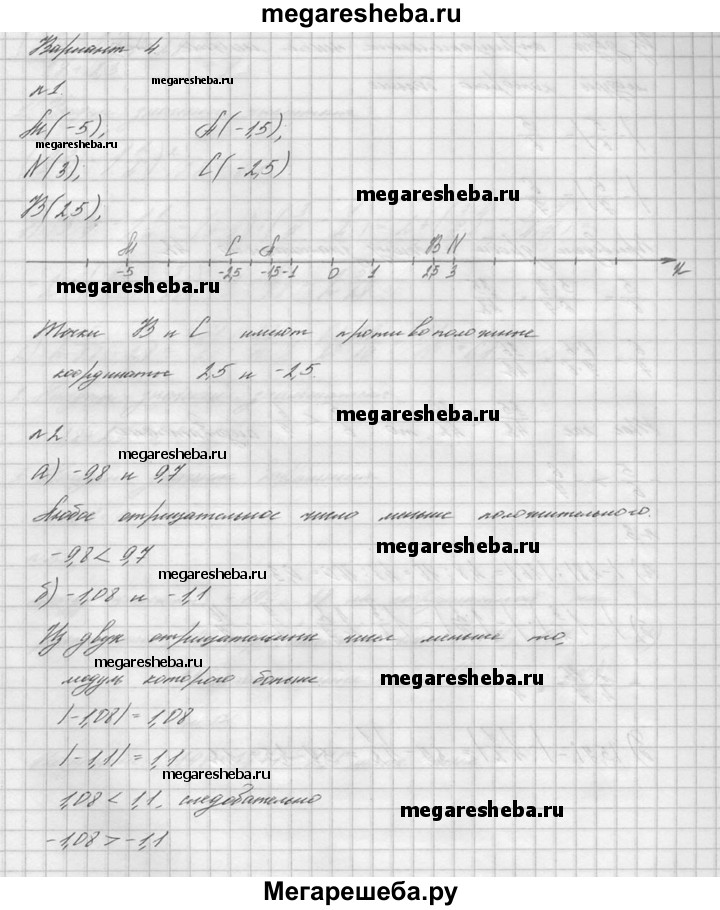 megaresheba.ru
Вариант 4
megaresheba.ru
№1.
М(-5), А(-1,5),
megaresheba.ru
N(3); С(-2,5)
megaresheba.ru
В(2,5),
М С А В N
-5 -2,5 -1,5 -1 0 1 2,5 3 х
megaresheba.ru
Точки В и С имеют противоположные
координаты 2,5 и -2,5.
megaresheba.ru
№2
megaresheba.ru
а) -9,8 и 9,7
Любое отрицательное число меньше положительного.
megaresheba.ru
-9,8 < 9,7
megaresheba.ru
б) -1,08 и -1,1
Из двух отрицательных чисел меньше то,
megaresheba.ru
модуль которого больше
megaresheba.ru
|-1,08| = 1,08
|-1,1| = 1,1
megaresheba.ru
1,08 < 1,1, следовательно
megaresheba.ru
-1,08 > -1,1
Мегарешеба.ру